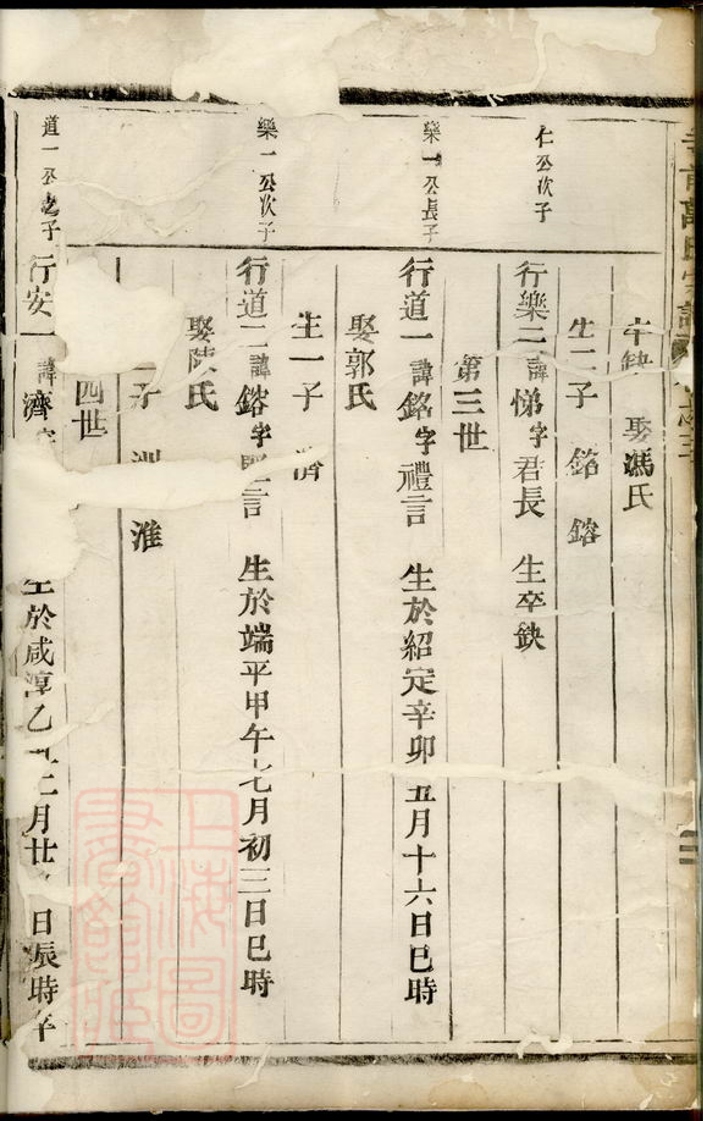 萬氏宗譜
卒缺 娶馮氏
生二子 銘 鎔
仁公次子
行樂二 諱悌 字君長 生卒缺
第三世
樂一公長子
行道一 諱銘 字禮言 生於紹定辛卯五月十六日巳時
娶郭氏
生一子 濟
樂一公次子
行道二 諱鎔 字 言 生於端平甲午七月初三日巳時
娶陳氏
子 淮
四世
道一公之子
行安一 諱濟 字
生於咸淳乙 二月廿 日辰時卒
上海圖書館藏